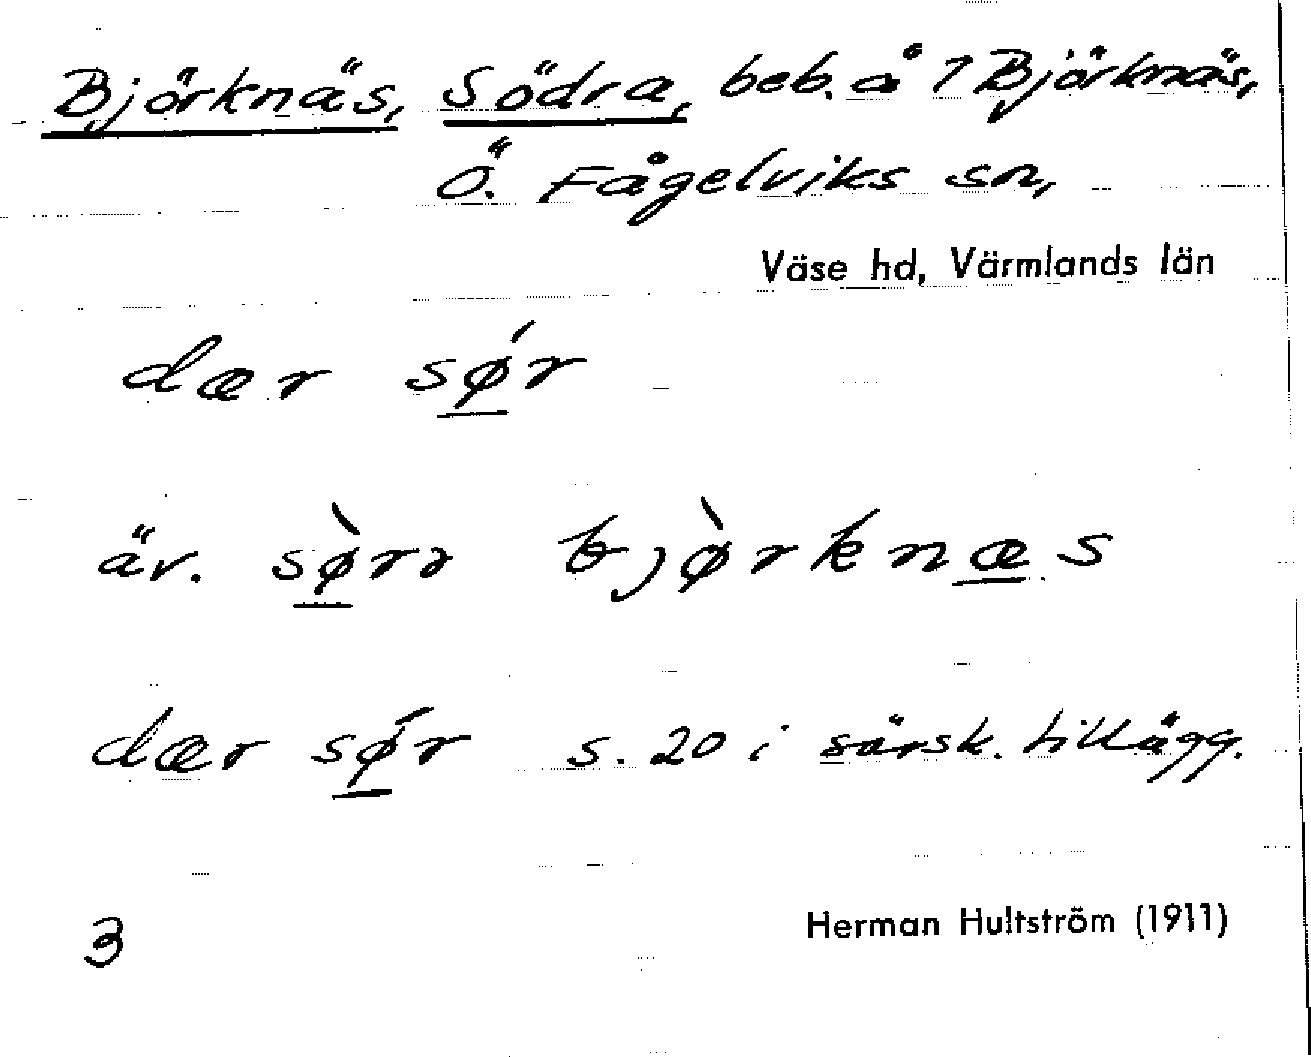 Björknäs, Södra, beb. å 1 Björknäs,
Ö. Fågelviks sn,
Väse hd, Värmlands län
dær sǿr
äv. sø̀rɹ bjø̀rknæs
dær sǿr s. 20 i särsk. tillägg.
3
Herman Hultström (1911)